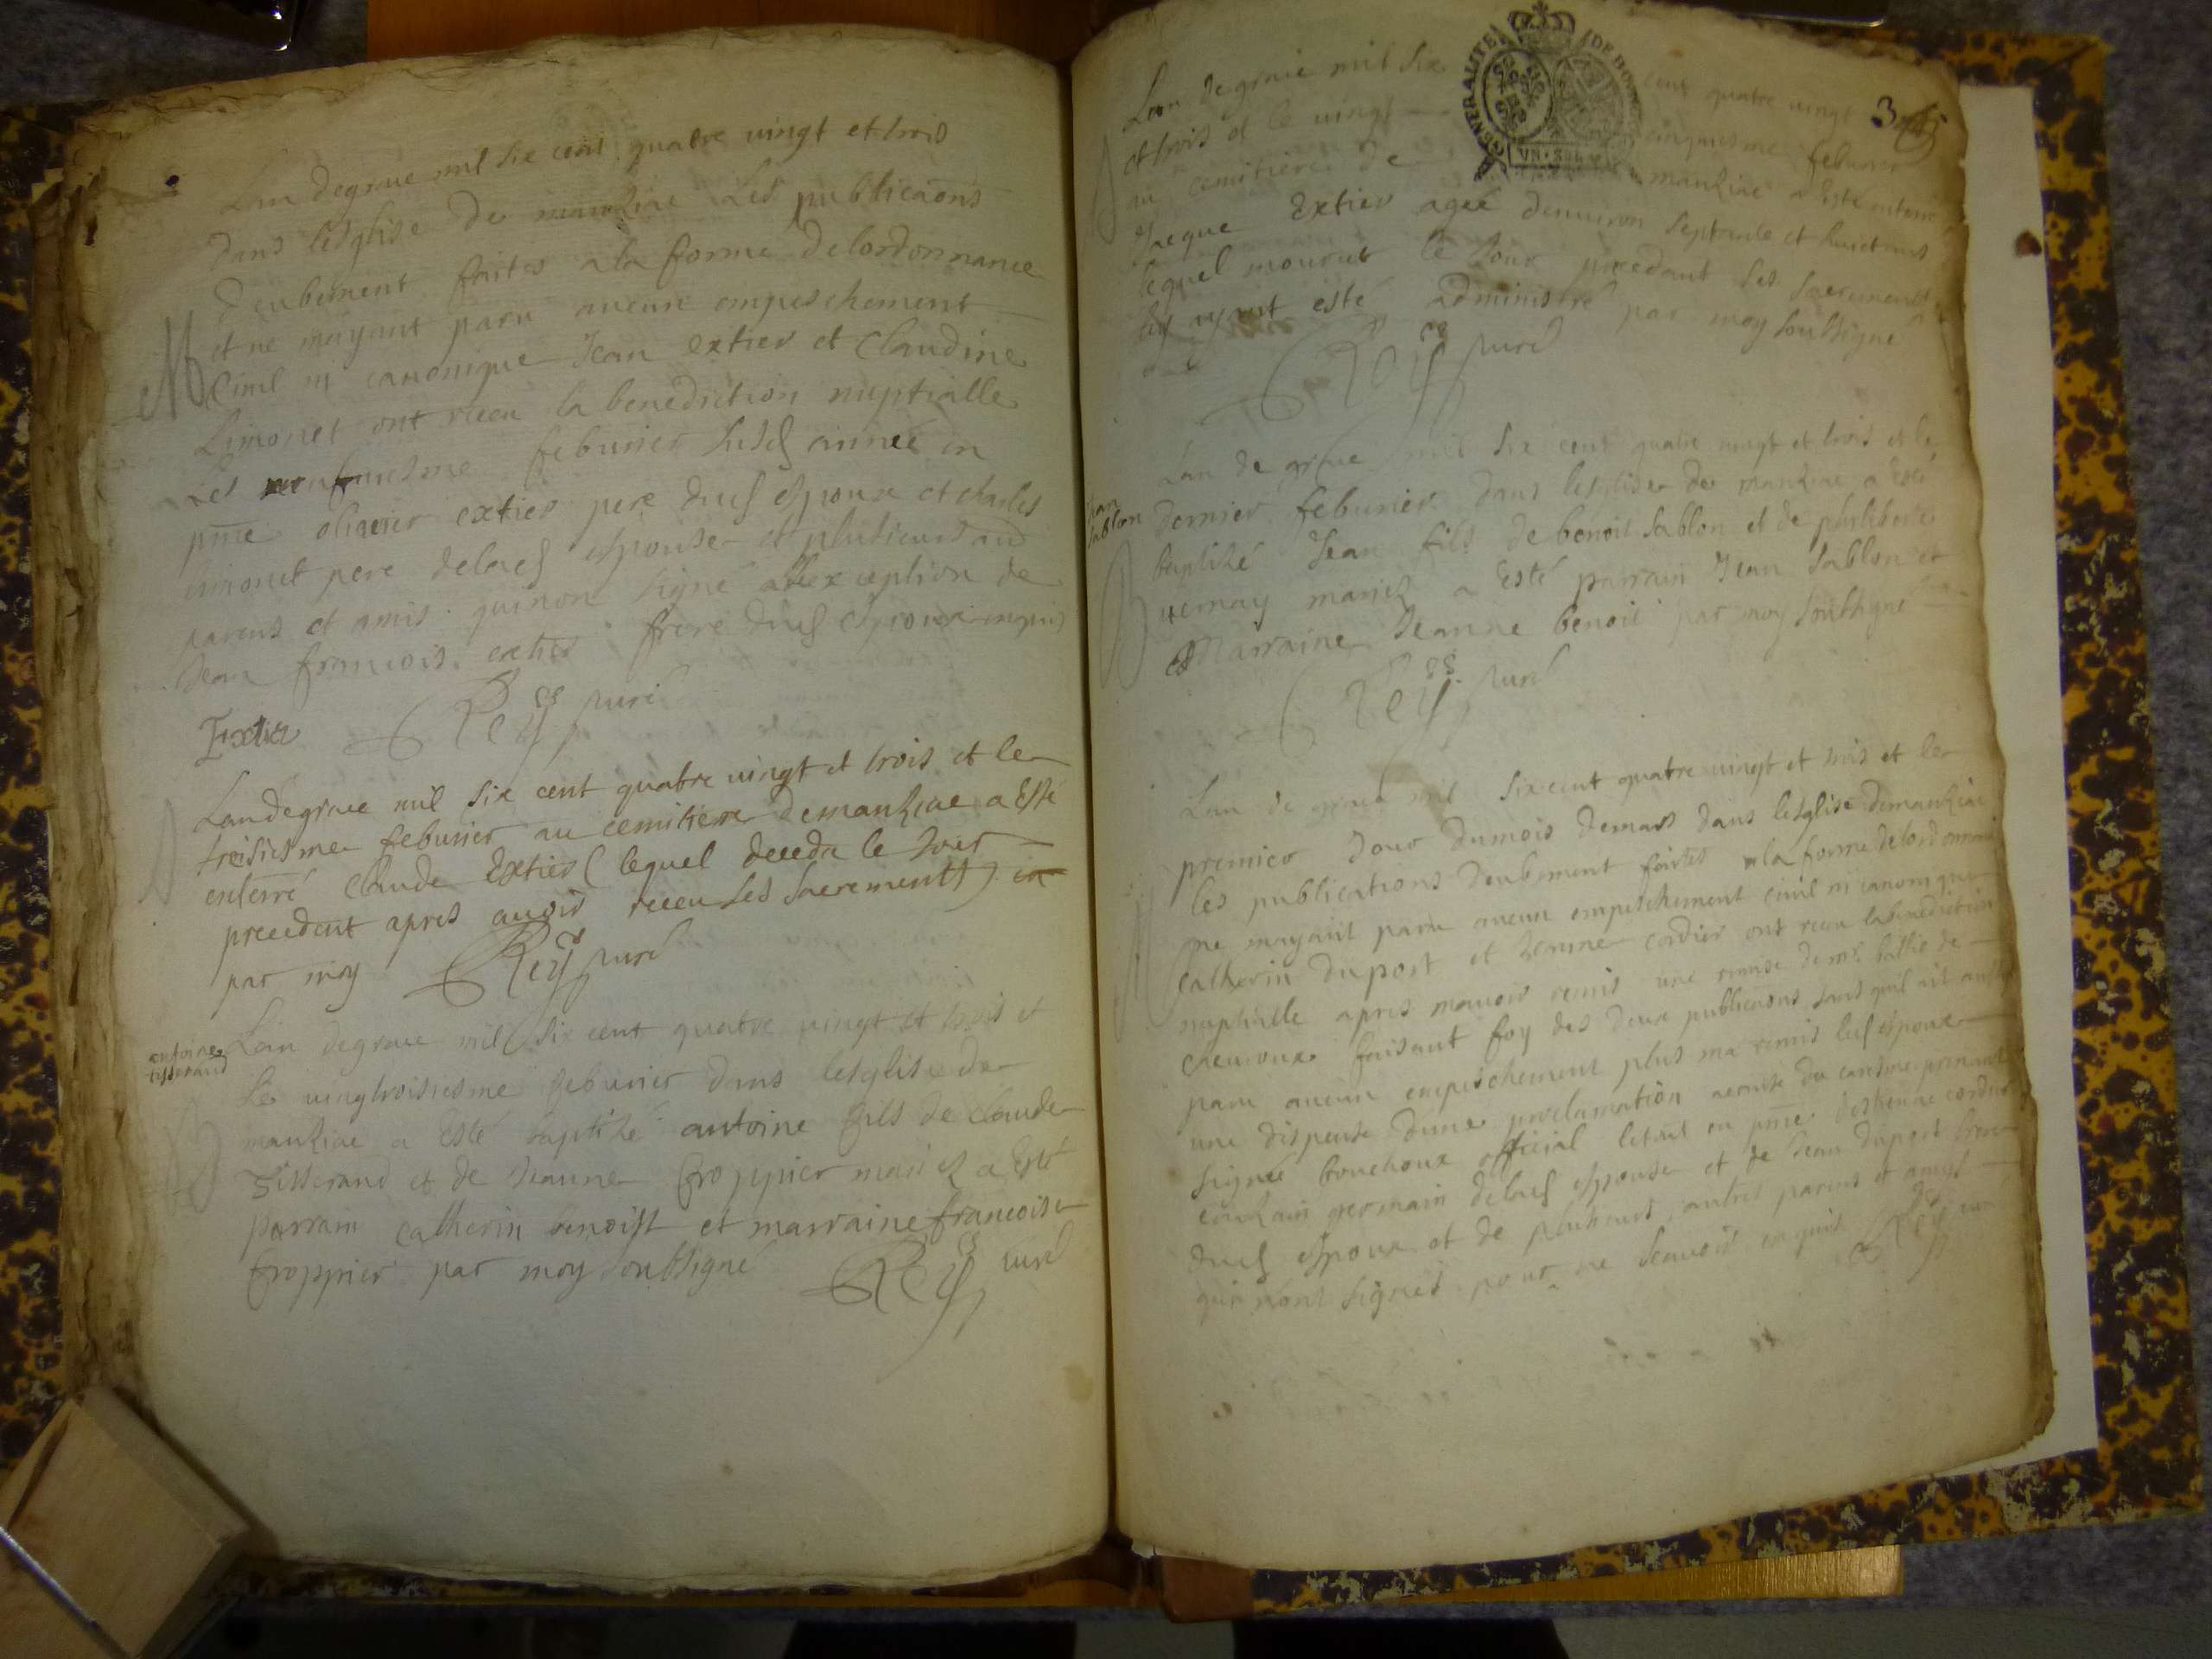 Lan degrace mil six cent quatre vingt et trois
dans lesglise de manziac les publicaons
deubement faites a la forme de lordonnance
et ne mayant paru aucun empeschement
M
Civil ni canonique Jean extier et Claudine
Limonet ont receu la benediction nuptialle
Les febvrier susd année en
pnce olivier extier pere dud espoux et charles
limonet pere delad espouse et plusieurs au
parens et amis quinon signé a lexception de
Jean francois extier frere dud espoux enquis
Extier Rey curé
Landegrace mil six cent quatre vingt et trois et le
treisiesme febvrier au cemitiere demanziac a Esté
enterré claude Extier ( lequel deceda le Jour
precedent apres avoir receu les sacrements )
par moy Rey curé
antoine
tisserand
Lan degrace mil six cent quatre vingt et trois et
Le vingtroisiesme febvrier dans lesglise de
manziac a Esté baptizé antoine fils de claude
B
Tisserand et de Jeanne froppier mariez a Esté
parrain catherin benoist et marraine francoise
froppier par moy soubsigné Rey curé
GENERALITE DE BO
3
Lan de grace mil six cent quatre vingt
et trois et le vingt cinquiesme febvrier
au cemitiere de manziac a Esté enterré
Jacque Extier agee denviron septante et huict ans
lequel mourut le Jour precedant les sacrements
luy ayant esté administré par moy soubsigné
Rey curé
Lan de grace mil six cent quatre vingt et trois et le
Jean
sablon
dernier febvrier dans lesglise de manziac a Esté
baptizé Jean fils de benoit sablon et de philiberte
B
vernay mariez a Esté parrain Jean sablon et
Marraine Jeanne benoit par moy soubsigné
Rey curé
Lan de grace mil six cent quatre vingt et trois et le
premier Jour dumois demars dans lesglise demanziac
les publications deubement faites a la forme delordonnan
ne mayant paru aucun empeschement civil ni canonique
M
catherin duport et Jeanne cordier ont receu labenediction
nuptialle apres mavoir remis une remise de mr
faisant foy des deux publicaons sans quil ait
paru aucun empeschement plus ma remis led espoux
une dispense dune proclamation du caresme prenant
signée bouchoux official letout en pnce destienne cordier
couzain germain delad espouse et de Jean duport frere
dud espoux et de plusieurs autres parens et amys
qui nont signés pour ne scavoir enquis Rey curé